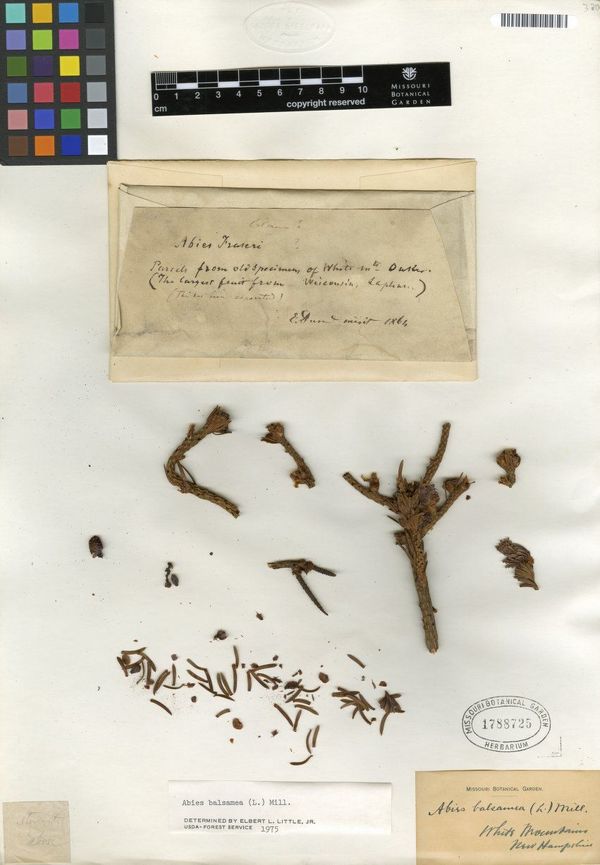 380
0 1 2 3 4 5 6 7 8 9 10
cm
copyright reserved
MISSOURI
BOTANICAL
GARDEN
Abies Fraseri ?
Parcels from old specimens of White mts
(The largest fruit from Wisconsin, Lapham.)
misit 1864
MISSOURI BOTANICAL GARDEN
1788725
HERBARIUM
Abies balsamea (L.) Mill.
DETERMINED BY ELBERT L. LITTLE, JR.
USDA-FOREST SERVICE 1975
above
MISSOURI BOTANICAL GARDEN.
Abies balsamea (L.) Mill.
White Mountains
New Hampshire